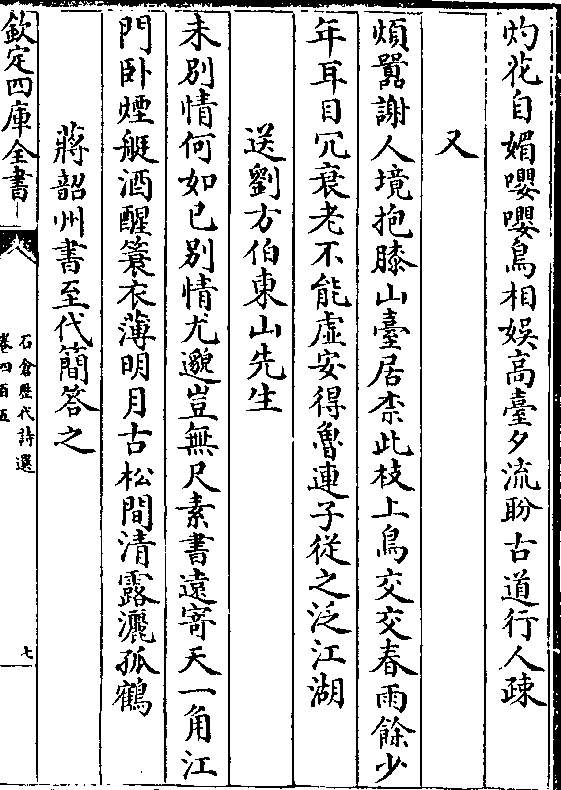 灼花自媚嚶嚶鳥相娛高臺夕流盼古道行人疎
又
煩囂謝人境抱膝山臺居柰此枝上鳥交交春雨餘少
年耳目冗衰老不能虛安得魯連子從之泛江湖
送劉方伯東山先生
未別情何如已別情尤邈豈無尺素書遠寄天一角江
門卧煙艇酒醒簑衣薄明月古松間清露灑孤鶴
蔣韶州書至代簡答之
欽定四庫全書
石倉歷代詩選
卷四百五
七